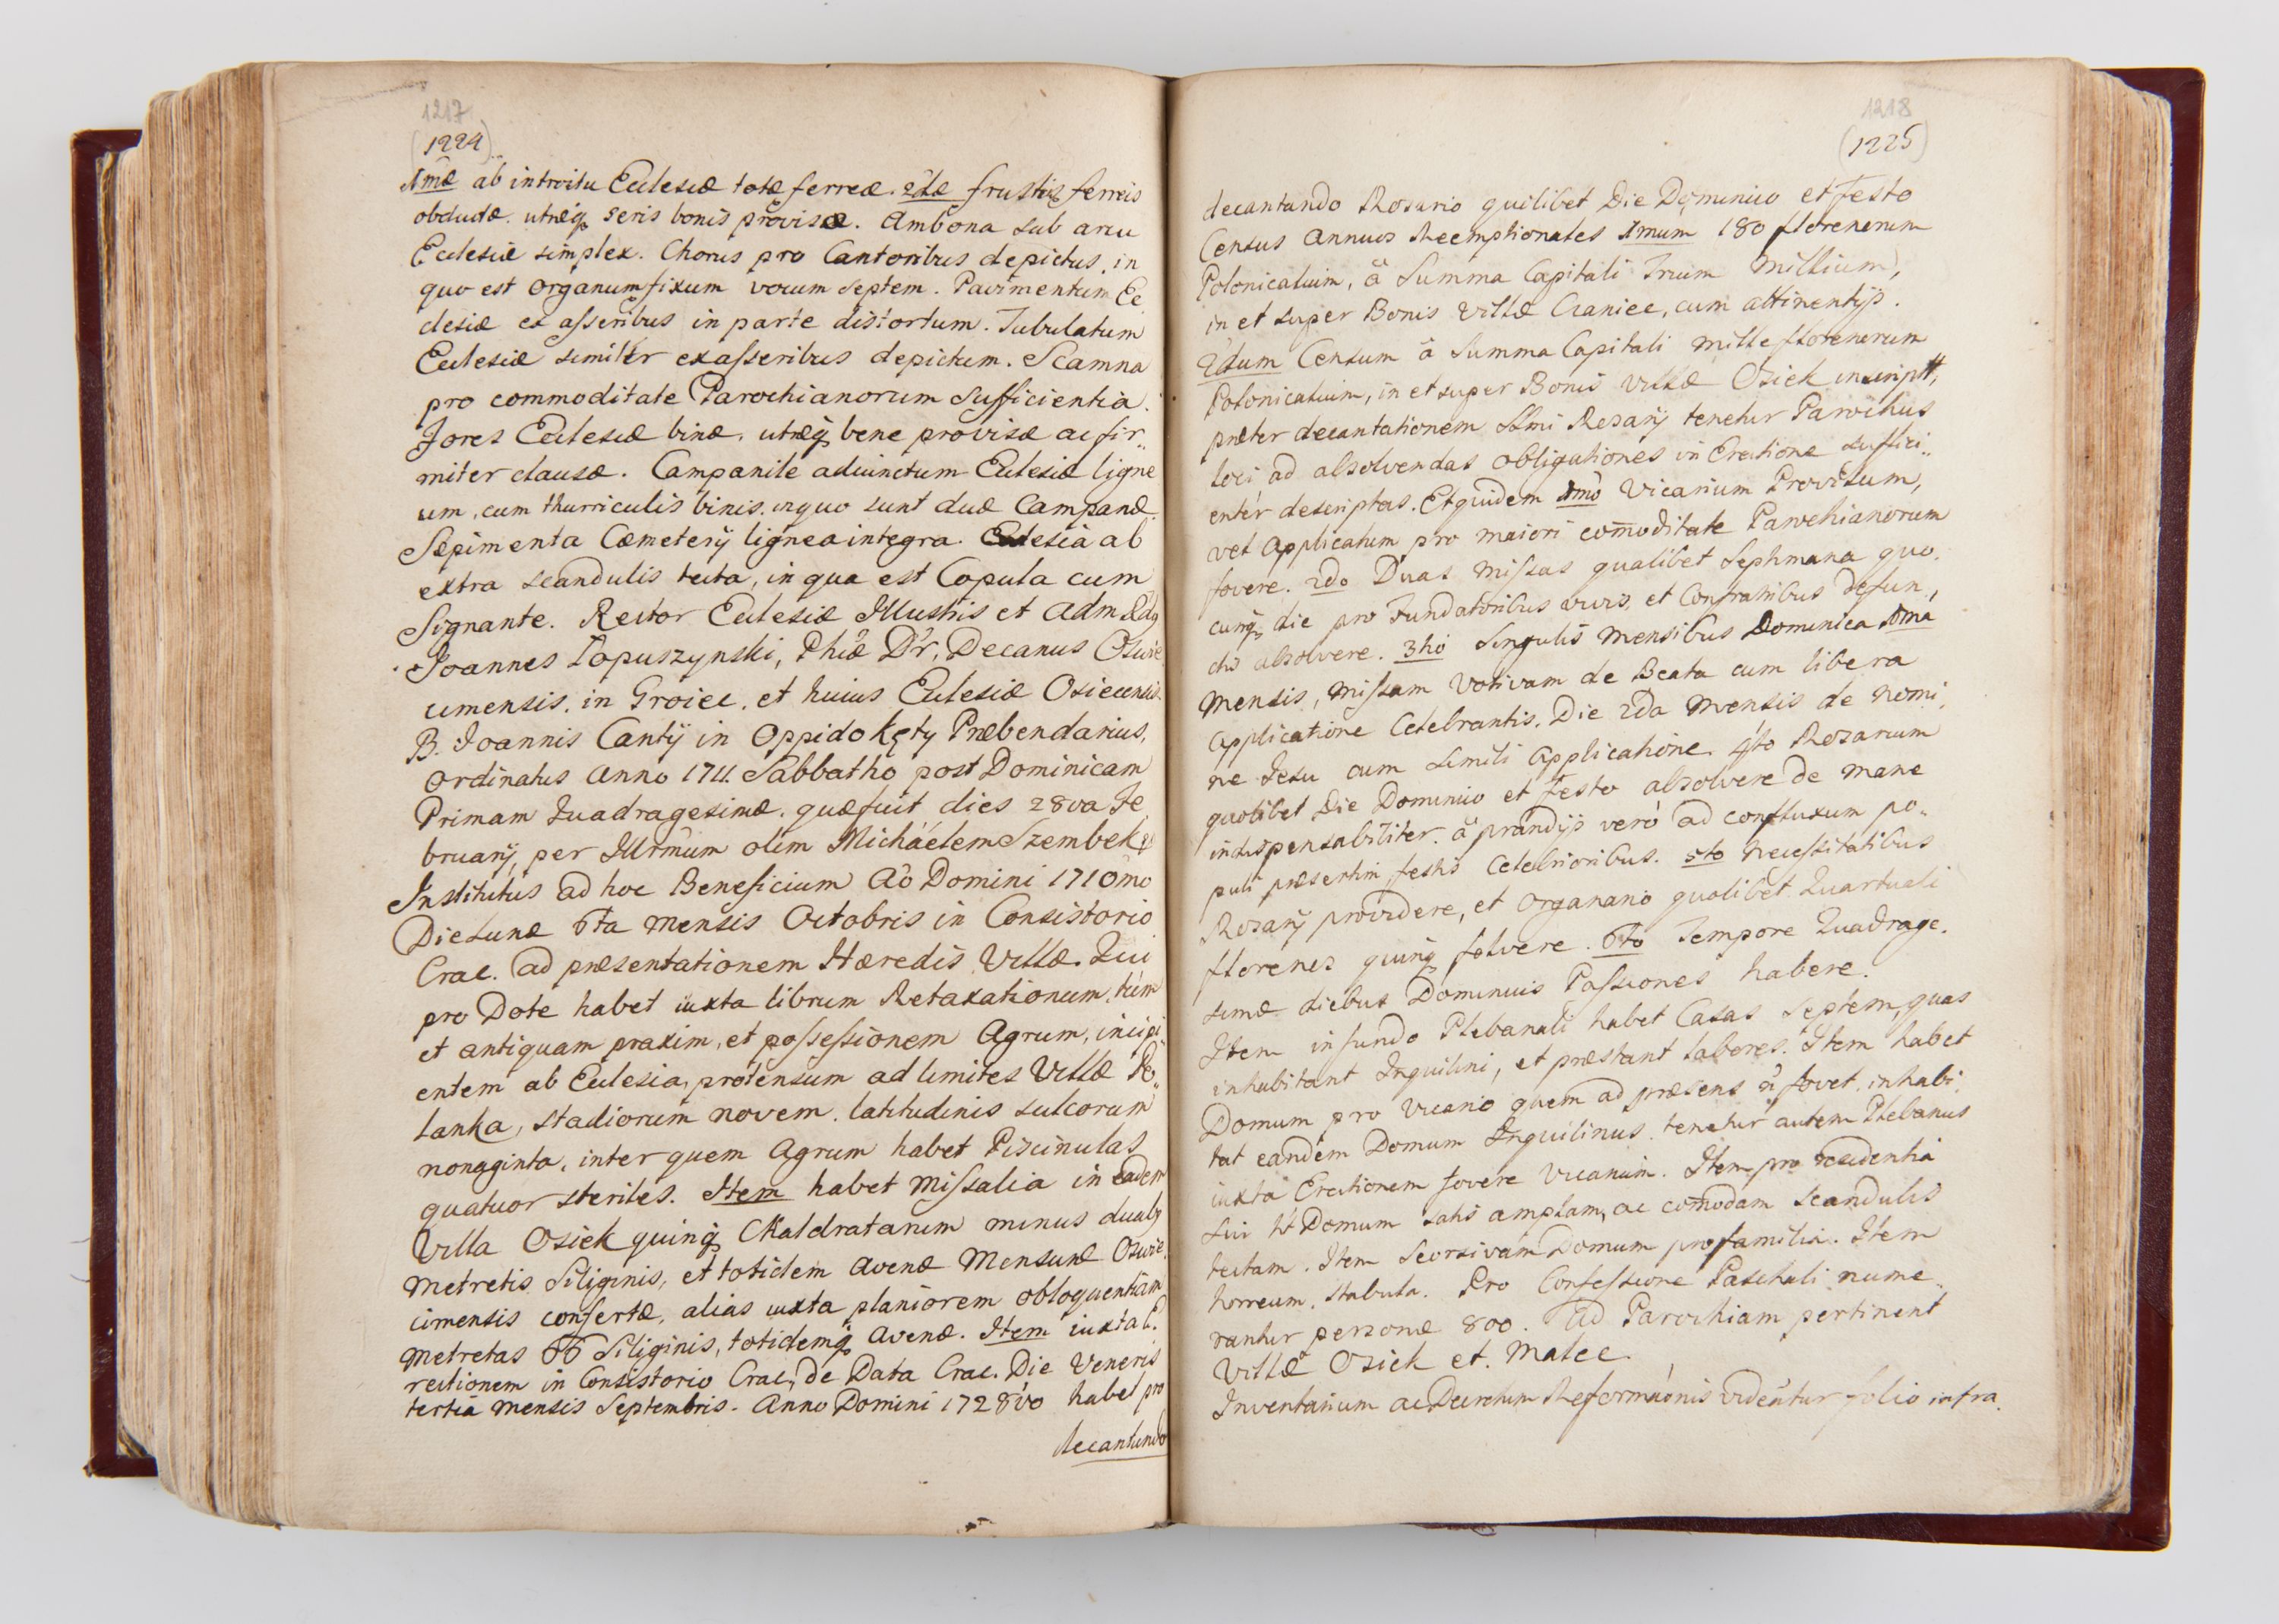 1217
(1224)
1mæ ab introitu Eclesiæ totæ ferreæ. 2dæ frustis ferreis
obductæ. utræq seris bonis provisæ. Ambona sub arcu
Eclesiæ simplex. Chorus pro Cantoribus depictus, in
quo est Organum fixum vocum septem. Pavimentum Ec
clesiæ ex asseribus in parte distortum. Tubulatum
Eclesiæ similiter ex asseribus depictum. Scamna
pro commoditate Parochianorum sufficientia.
Fores Eclesiæ binæ, utræq bene provisæ ac fir„
miter clausæ. Campanile adiunctum Eclesiæ ligne
um, cum thurriculis binis, in quo sunt duæ Campanæ.
Sæpimenta Cæmeterÿ lignea integra. Eclesia ab
extra scandulis tecta, in qua est Copula cum
Signante. Rector Eclesiæ Illustris et Adm Rdq
Joannes Łopuszynski, Phiæ Dr, Decanus Oswie
cimensis, in Groiec, et huius Eclesiæ Osiecensis.
B. Joannis Cantÿ in Oppido Kęty Præbendarius,
Ordinatus Anno 1711. Sabbatho post Dominicam
Primam Quadragesimæ, quæ fuit dies 28va Fe
bruarÿ, per Illrmum olim Michaelem Szembek
Institutus ad hoc Beneficium Ao Domini 1710mo
Die Lunæ 6ta Mensis Octobris in Consistorio
Crac. ad præsentationem Hæredis Villæ. Qui
pro Dote habet iuxta librum Retaxationum, tùm
et antiquam praxim, et possessionem Agrum, incipi„
entem ab Eclesia, protensum ad limites Villæ Po„
lanka, stadiorum novem, latitudinis sulcorum
nonaginta, inter quem Agrum habet Piscinulas
quatuor steriles. Item habet Missalia in eadem
Villa Osiek quinq Maldratarum minus duabq
Metretis Siliginis, et totidem Avenæ Mensuræ Oswie„
cimensis consertæ, alias iuxta planiorem obloquentiam
Metretas 66 Siliginis, totidemq Avenæ. Item iuxta E„
rectionem in Consistorio Crac, de Data Crac. Die Veneris
tertia Mensis Septembris. Anno Domini 1728vo habet pro
decantando
1218
(1225)
decantando Rosario quilibet Die Dominico et Festo
Census Annuos Reemptionales 1mum 180 florenorum
Polonicalium, à Summa Capitali Trium Millium,
in et super Bonis Villæ Craniec, cum attinentÿs.
2dum Censum à Summa Capitali mille florenorum
Polonicalium, in et super Bonis Villæ Osiek inscript,
præter decantationem SSmi Rosarÿ tenetur Parochus
loci ad absolvendas Obligationes in Erectione suffici„
entèr descriptas. Et quidem 1mò Vicarium Provisum,
vel Applicatum pro maiori comoditate Parochianorum
fovere. 2do Duas Missas qualibet Septimana quo„
cunq die pro Fundatoribus vivis, et Confratribus defun„
ctis absolvere. 3tiò Singulis Mensibus Dominica 1ma
Mensis, Missam Votivam de Beata cum libera
Applicatione Celebrantis. Die 2da Mensis de Nomi„
ne Jesu cum simili Applicatione. 4tò Rosarium
quolibet Die Dominico et Festo absolvere de mane
indispensabiliter. à prandÿs verò ad confluxum po„
puli præsertim festis Celebrioribus. 5to Necessitatibus
Rosarÿ providere, et Organario quolibet Quartuali
florenos quinq solvere. 6to Tempore Quadrage„
simæ diebus Dominicis Passiones habere.
Item in fundo Plebanali habet Casas Septem, quas
inhabitant Inquilini, et præstant labores. Item habet
Domum pro Vicario quem ad præsens ñ fovet, inhabi„
tat eandem Domum Inquilinus, tenetur autem Plebanus
iuxta Erectionem fovere Vicarium. Item pro residentia
sui ht Domum satis amplam, ac comodam scandulis
tectam. Item Seorsivam Domum pro familia. Item
horreum, stabula. Pro Confessione Paschali nume„
rantur personæ 800. Ad Parochiam pertinent
Villæ Osiek et. Malec.
Inventarium ac Decretum Reformãonis videntur folio infra.